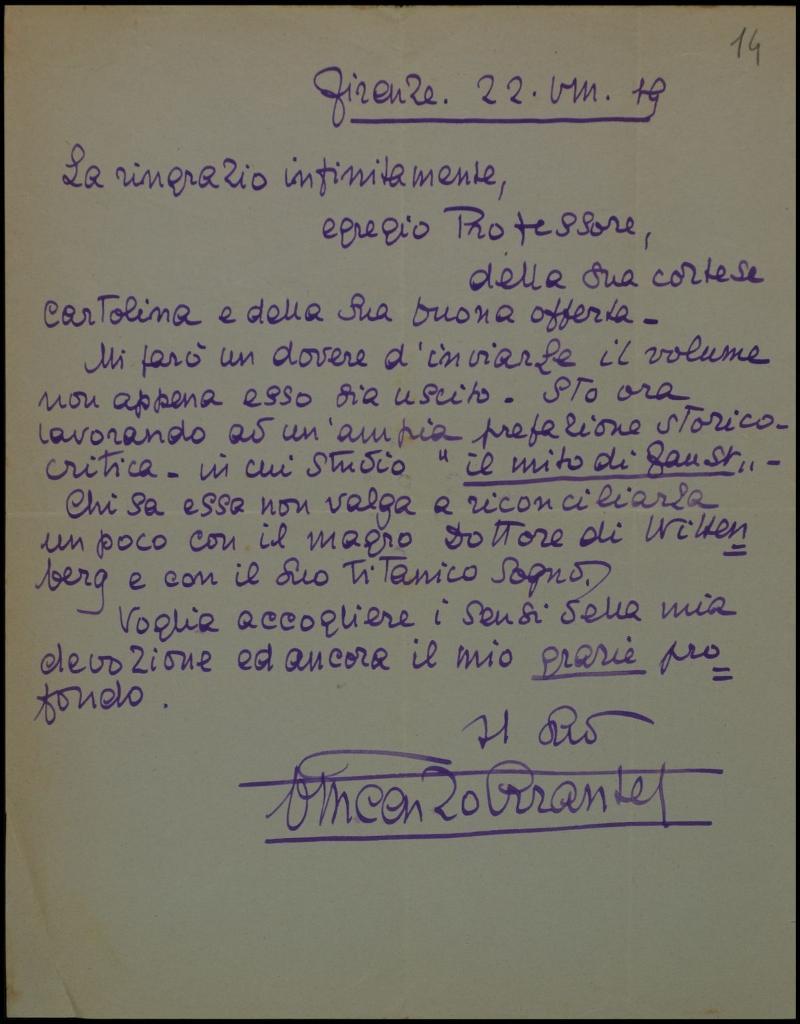 14
Firenze. 22. VIII. 19
La ringrazio infinitamente,
egregio Professore,
della Sua cortese
cartolina e della Sua buona offerta -
Mi farò un dovere d'inviarLe il volume
non appena esso sia uscito - Sto ora
lavorando ad un'ampia prefazione storico-
critica - in cui studio "il mito di Faust„ -
Chi sa essa non valga a riconciliarLa
un poco con il magro Dottore di Witten
berg e con il Suo titanico sogno.
Voglia accogliere i sensi della mia
devozione ed ancora il mio grazie pro
fondo.
Vincenzo Errante